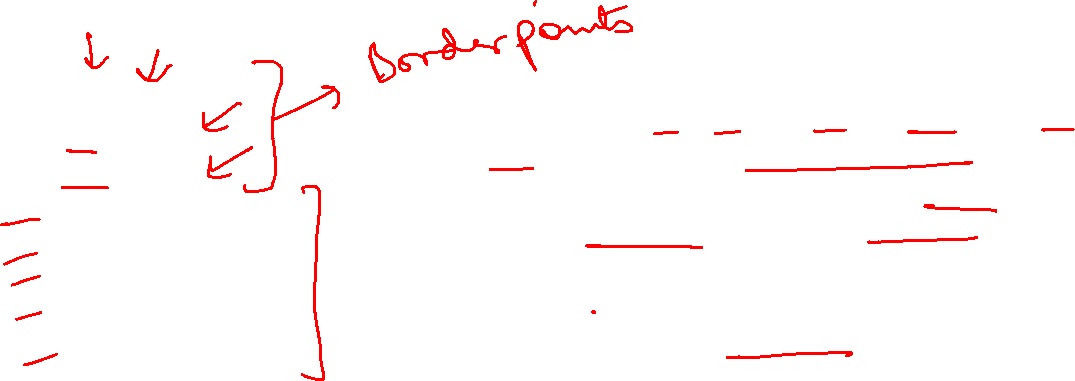 Border points